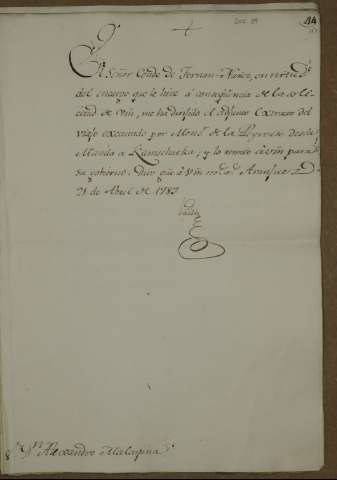 El Señor Conde de Fernan-Nuñez, en virtud
del encargo que le hice á conseqüencia de la soli-
citud de Vm, me ha dirigido el adjunto Extracto del
viage executado por Monsr de la Peyrouse desde
Manila a Kamschatka, y lo remito a Vm para
su gobierno. Dios gue á Vm ms as Aranjuez
21 de Abril de 1789
Valdés
Sr Dn Alexandro Malaspina